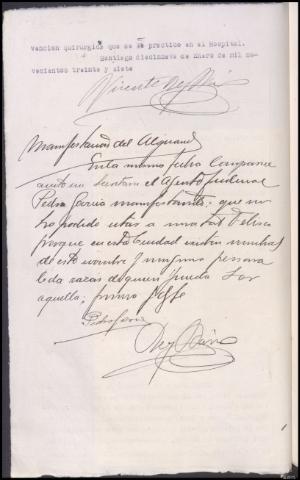 vención quirurgica que se le practico en el Hospital.
Santiago diecinueve de Enero de mil no-
vecientos treinta y siete
Vicente Rey
Manifestacion del Alguacil
En la misma fecha Comparece
ante mi Secretario el Agente judicial
Pedro Garcia manifestando: que no
ha podido citar a una tal Felisa
porque en esta Ciudad existen muchas
de este nombre y ninguna persona
le da razon de quien pueda ser
aquella; firma
Pedro Garcia
Rey